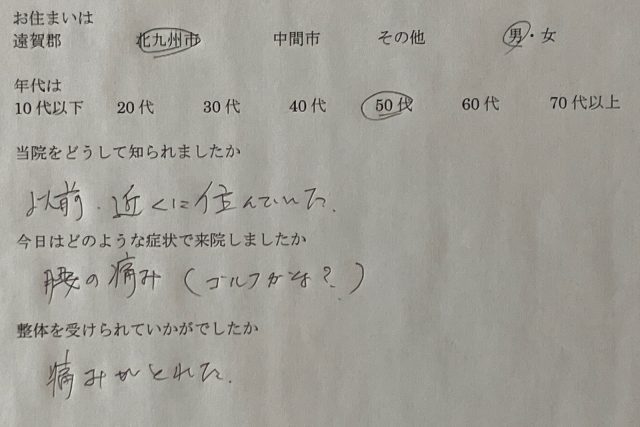 お住まいは
遠賀郡 北九州市 中間市 その他 男・女
年代は
10代以下 20代 30代 40代 50代 60代 70代以上
当院をどうして知られましたか
以前、近くに住んでいた。
今日はどのような症状で来院しましたか
腰の痛み(ゴルフかな?)
整体を受けられていかがでしたか
痛みがとれた。